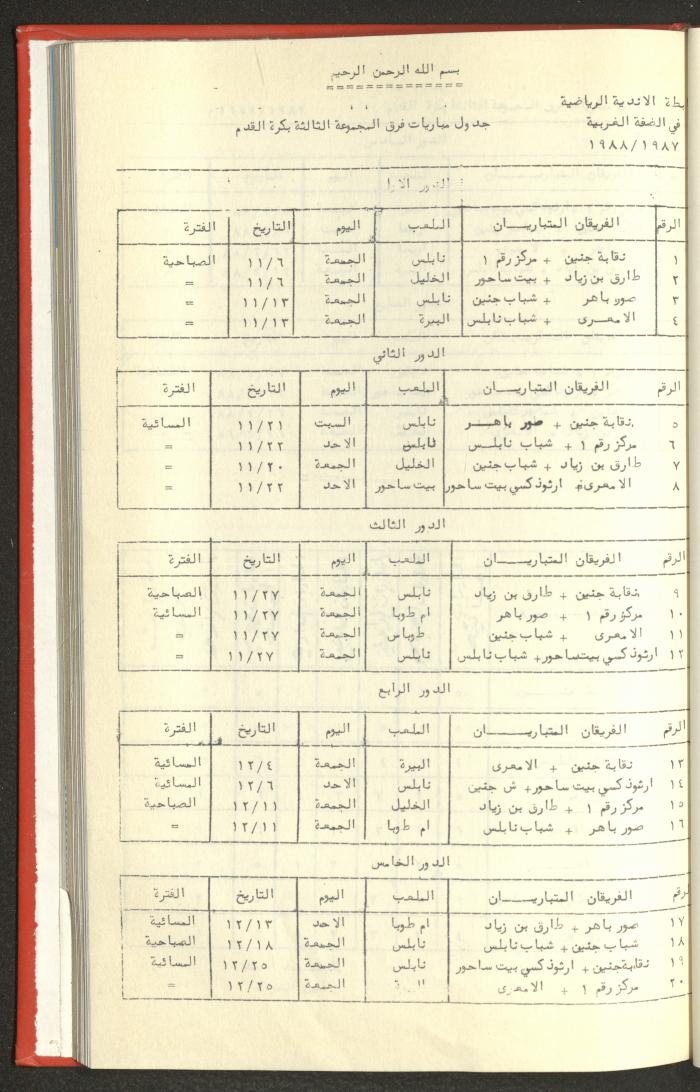 بسم الله الرحمن الرحيم
بطة الاندية الرياضية
جدول مباريات فرق المجموعة الثالثة بكرة القدم في الضفة الغربية
١٩٨٨/١٩٨٧
الدور الاول
الرقم الفريقان المتباريـــان الملعب اليوم التاريخ الفترة
١ نقابة جنين + مركز رقم ١ نابلس الجمعة ١١/٦ الصباحية
٢ طارق بن زياد + بيت ساحور الخليل الجمعة ١١/٦ =
٣ صور باهر + شباب جنين نابلس الجمعة ١١/١٣ =
٤ الامعرى + شباب نابلس البيرة الجمعة ١١/١٣ =
الدور الثاني
الرقم الفريقان المتباريـــان الملعب اليوم التاريخ الفترة
٥ نقابة جنين + صور باهـــر نابلس السبت ١١/٢١ المسائية
٦ مركز رقم ١ + شباب نابلــس نابلس الاحد ١١/٢٢ =
٧ طارق بن زياد + شباب جنين الخليل الجمعة ١١/٢٠ =
٨ الامعرى + ارثوذكسي بيت ساحور بيت ساحور الاحد ١١/٢٢ =
الدور الثالث
الرقم الفريقان المتباريـــان الملعب اليوم التاريخ الفترة
٩ نقابة جنين + طارق بن زياد نابلس الجمعة ١١/٢٧ الصباحية
١٠ مركز رقم ١ + صور باهر ام طوبا الجمعة ١١/٢٧ المسائية
١١ الامعرى + شباب جنين طوباس الجمعة ١١/٢٧ =
١٢ ارثوذكسي بيت ساحور + شباب نابلس نابلس الجمعة ١١/٢٧ =
الدور الرابع
الرقم الفريقان المتباريـــان الملعب اليوم التاريخ الفترة
١٣ نقابة جنين + الامعرى البيرة الجمعة ١٢/٤ المسائية
١٤ ارثوذكسي بيت ساحور + ش جنين نابلس الاحد ١٢/٦ المسائية
١٥ مركز رقم ١ + طارق بن زياد الخليل الجمعة ١٢/١١ الصباحية
١٦ صور باهر + شباب نابلس ام طوبا الجمعة ١٢/١١ =
الدور الخامس
لرقم الفريقان المتباريـــان الملعب اليوم التاريخ الفترة
١٧ صور باهر + طارق بن زياد ام طوبا الاحد ١٢/١٣ المسائية
١٨ شباب جنين + شباب نابلس نابلس الجمعة ١٢/١٨ الصباحية
١٩ نقابة جنين + ارثوذكسي بيت ساحور نابلس الجمعة ١٢/٢٥ المسائية
٢٠ مركز رقم ١ + الامعرى الجمعة ١٢/٢٥ =